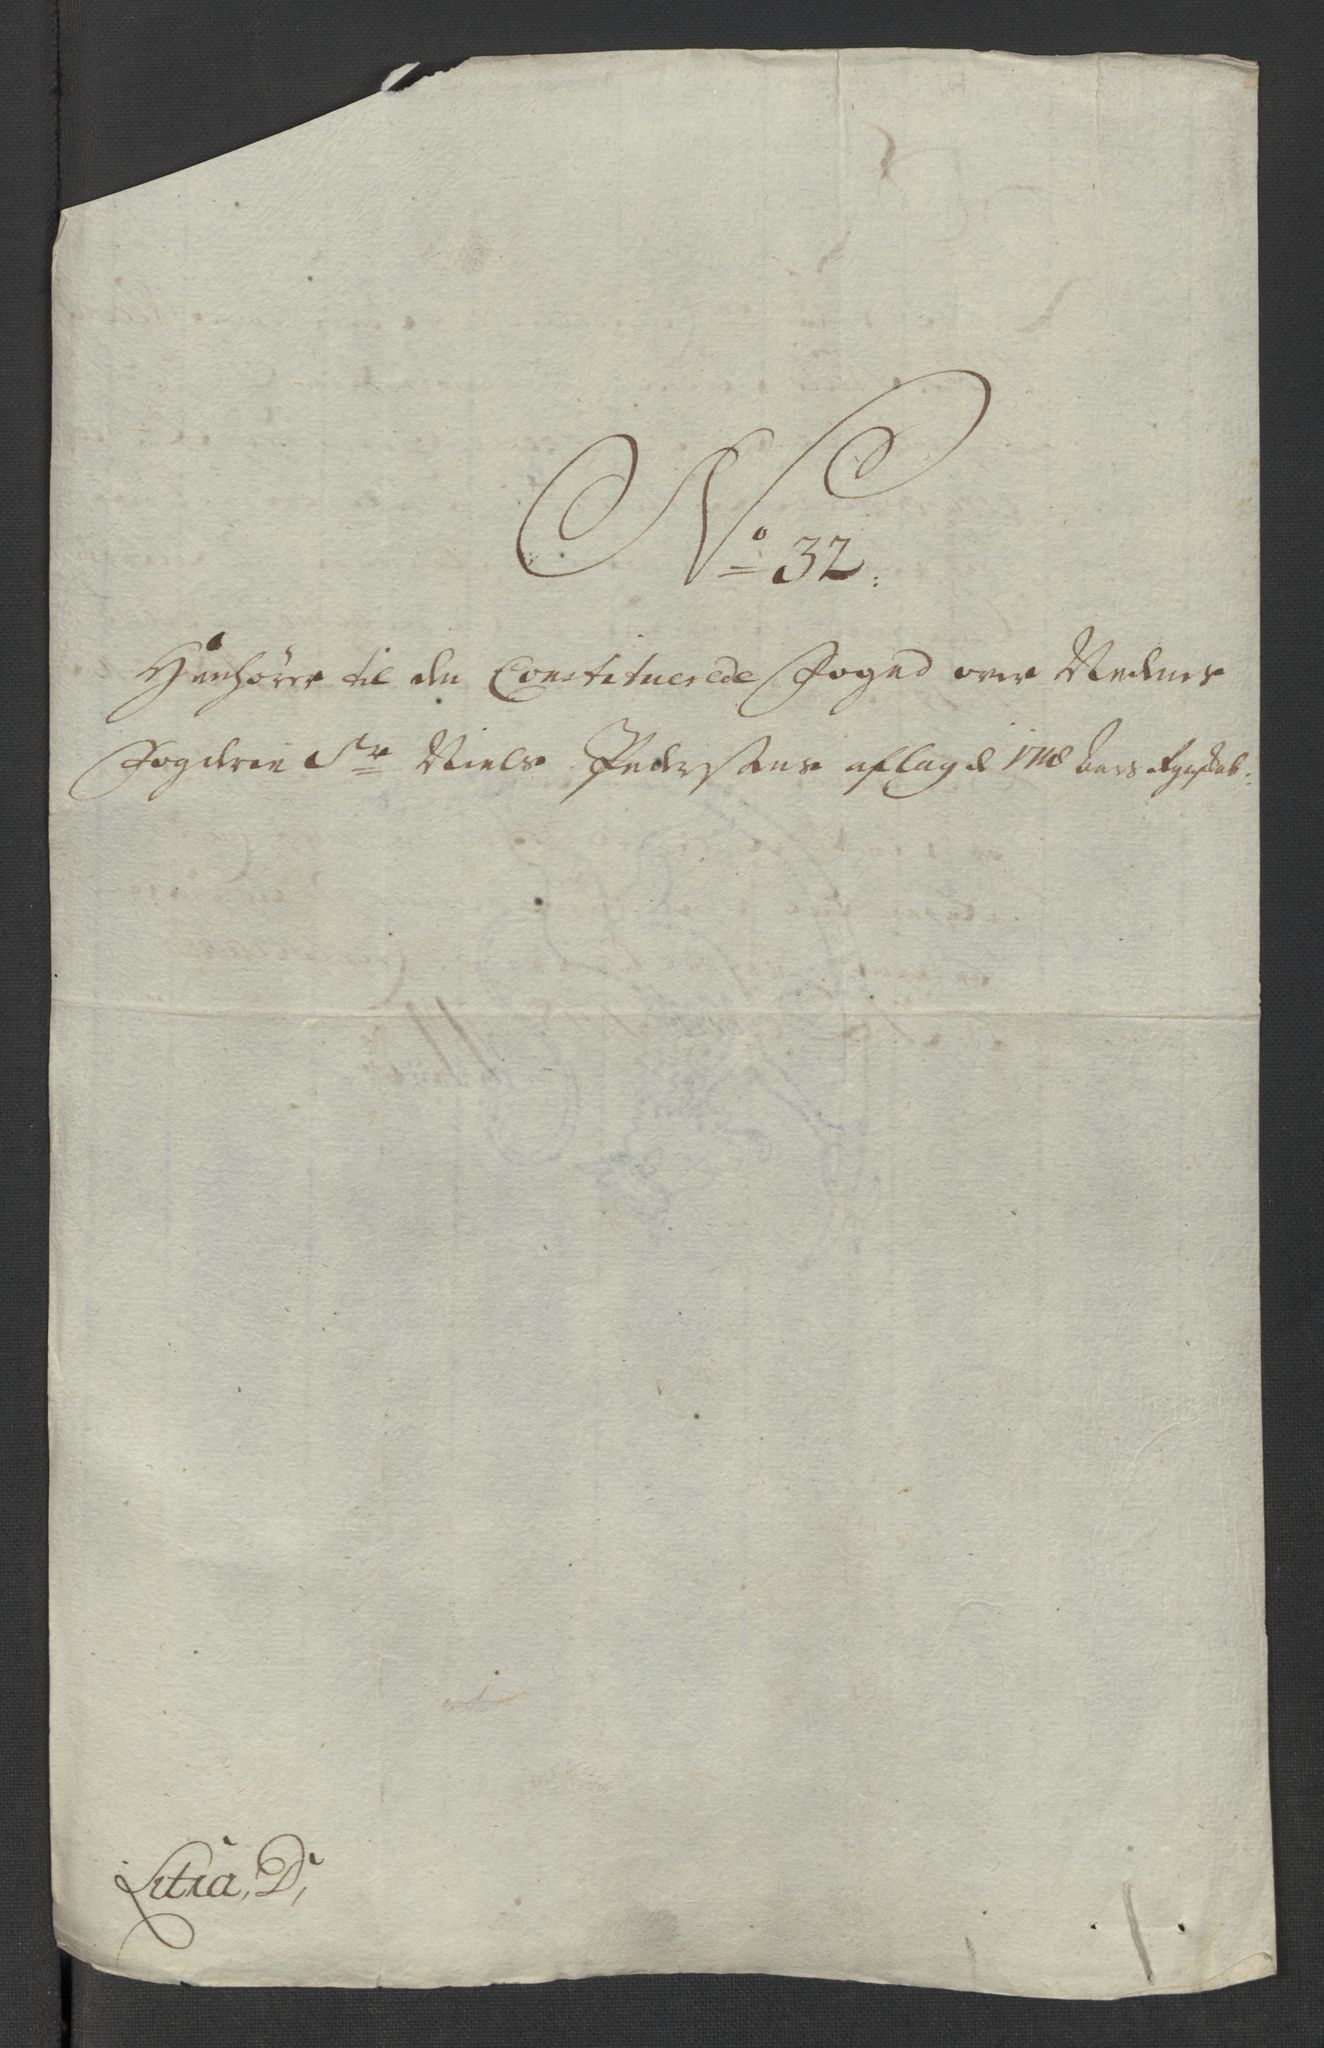 No 32.
Henhører til den Constituerede Foged over Nedenes
Fogderie Sr Niels Pedersøns aflagde 1718 Aars Regnskab.
Litra, D,